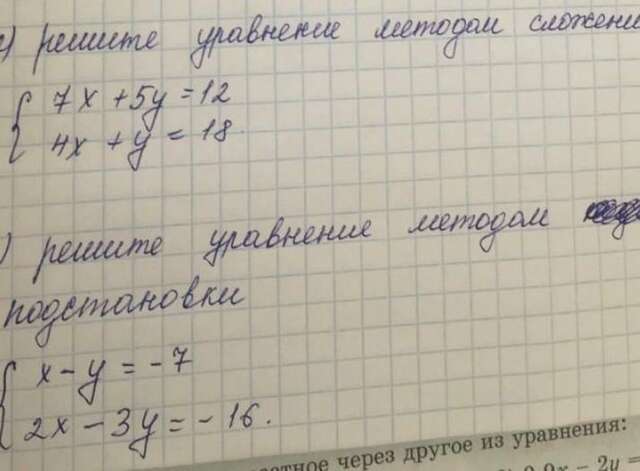 решите уравнение методом сложени
7x + 5y = 12
4x + y = 18
решите уравнение методом
подстановки
x - y = - 7
2x - 3y = - 16.
через другое из уравнения: